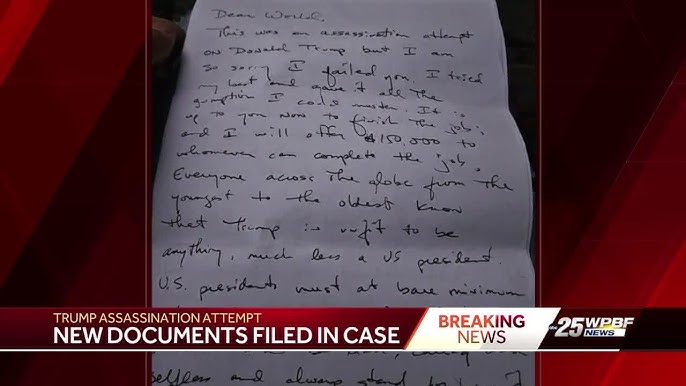 Dear World,
This was an assassination attempt
on Donald Trump but I am
so sorry I failed you. I tried
my best and gave it all the
gumption I could muster. It is
up to you now to finish the job;
and I will offer $150,000 to
whomever can complete the job.
Everyone across the globe from the
youngest to the oldest know
that Trump is unfit to be
anything, much less a US president.
U.S. presidents must at bare minimum
TRUMP ASSASSINATION ATTEMPT
NEW DOCUMENTS FILED IN CASE
BREAKING
NEWS
abc 25 WPBF
NEWS
selfless and always stand